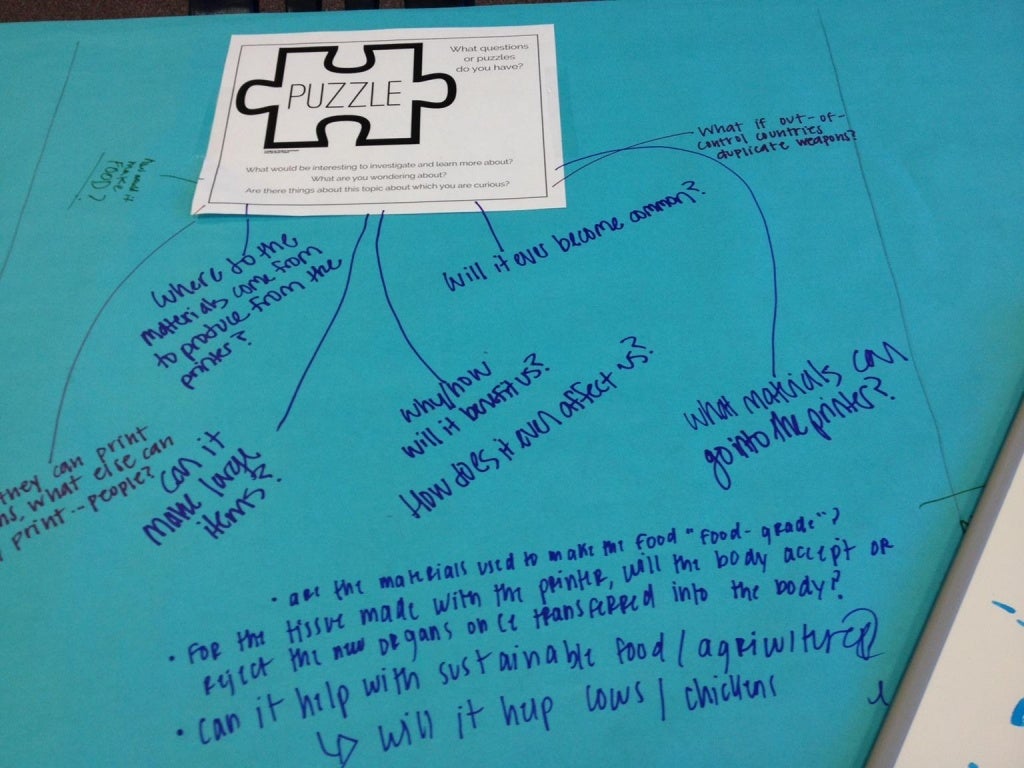 PUZZLE
What questions
or puzzles
do you have?
What would be interesting to investigate and learn more about?
What are you wondering about?
Are there things about this topic about which you are curious?
What if out-of-
control countries
duplicate weapons?
make
FOOD?
Where to the
materials come from
to produce from the
printer?
Will it ever become common?
they can print
what else can
print--people?
can it
make large
items?
why/how
will it benefit us?
How does it even affect us?
What materials can
go into the printer?
• are the materials used to make the food "food-grade"?
• For the tissue made with the printer, will the body accept or
reject the new organs once transferred into the body?
• Can it help with sustainable food/agriculture?
↳ Will it help cows/chickens